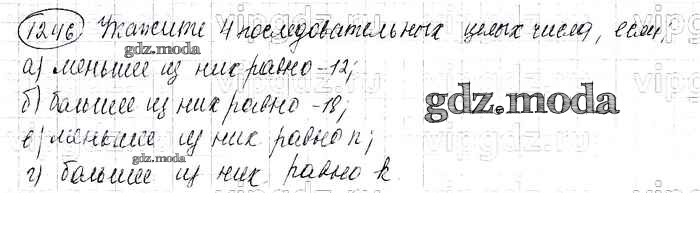 1246 Укажите 4 последовательных целых числа, если,
а) меньшее из них равно -12;
б) большее из них равно -18;
в) меньшее из них равно n;
г) большее из них равно k.
gdz.moda
gdz.moda
gdz.moda
vipgdz.ru